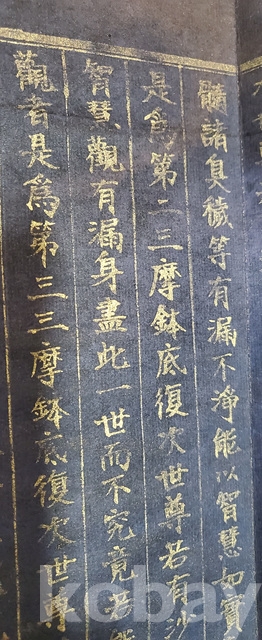 髓諸臭穢等有漏不淨能以智慧如實
是為第二三摩鉢底復次世尊若有沙
智慧觀有漏身盡此一世而不究竟若能
觀者是為第三三摩鉢底復次世尊
kobay